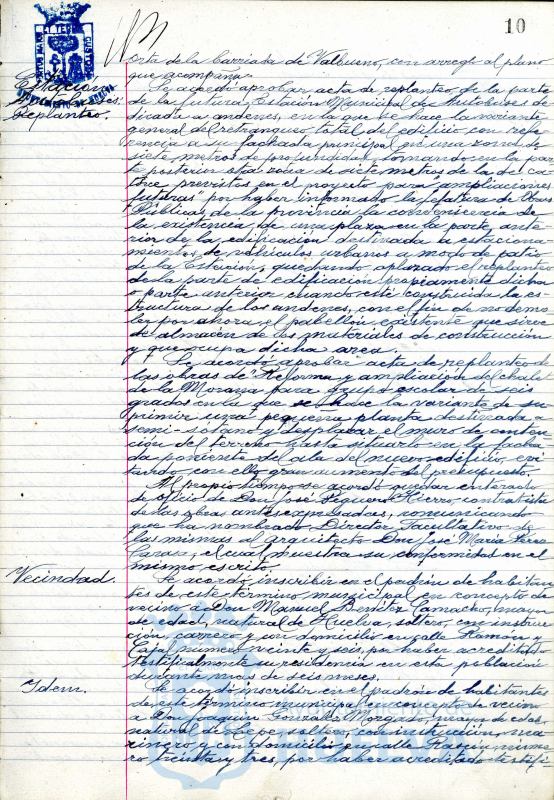 10
orta de la barriada de Valbueno, con arreglo al plano
que acompaña.
Estación
Autobuses.
Replanteo.
Se acordó aprobar, acta de replanteo, de la parte
de la futura Estación Municipal de Autobuses de
dicada a andenes, en la que se hace la variante
general del retranqueo total del edificio con refe
rencia a su fachada principal en una zona de
siete metros de profundidad, tomando en la par
te posterior otra zona de siete metros de la de ca
torce previstos en el proyecto para ampliaciones
futuras por haber informado la Jefatura de Obras
Públicas de la provincia la conveniencia de
la existencia de una plaza en la parte ante
rior de la edificación destinada a estaciona
mientos de vehículos urbanos a modo de patio
de la Estación, quedando aplazado el replanteo
de la parte de edificación propiamente dicha
o parte anterior cuando esté construida la es
tructura de los andenes, con el fin de no demo
ler por ahora el pabellón existente que sirve
de almacén de los materiales de construcción
y que ocupa dicha área.
Se acordó aprobar acta de replanteo de
las obras de Reforma y ampliación del chalet
de la Morana para grupo escolar de seis
grados en la que se hace la variante de su
primir una pequeña planta destinada a
semi-sótano y desplazar el muro de conten
ción del terreno hasta situarlo en la facha
da poniente del ala del nuevo edificio, evi
tando con ello gran aumento del presupuesto.
Al propio tiempo se acordó quedar enterado
de oficio de Don José Peguero Hierro, contratista
de las obras antes expresadas, comunicando
que ha nombrado Director Facultativo de
las mismas al arquitecto Don José María Pérez
Carasa, el cual muestra su conformidad en el
mismo escrito.
Vecindad.
Se acordó inscribir en el padrón de habitan
tes de este término municipal en concepto de
vecino a Don Manuel Benítez Camacho, mayor
de edad, natural de Huelva, soltero, con instruc
ción, carrero y con domicilio en calle Ramón y
Cajal número veinte y seis, por haber acreditado
testificalmente su residencia en esta población
durante más de seis meses.
Idem.
Se acordó inscribir en el padrón de habitantes
de este término municipal en concepto de vecino
a Don Joaquín González Morgado, mayor de edad,
natural de Lepe, soltero, con instrucción, ma
rinero y con domicilio en calle Rascón, núme
ro treinta y tres, por haber acreditado testifi-